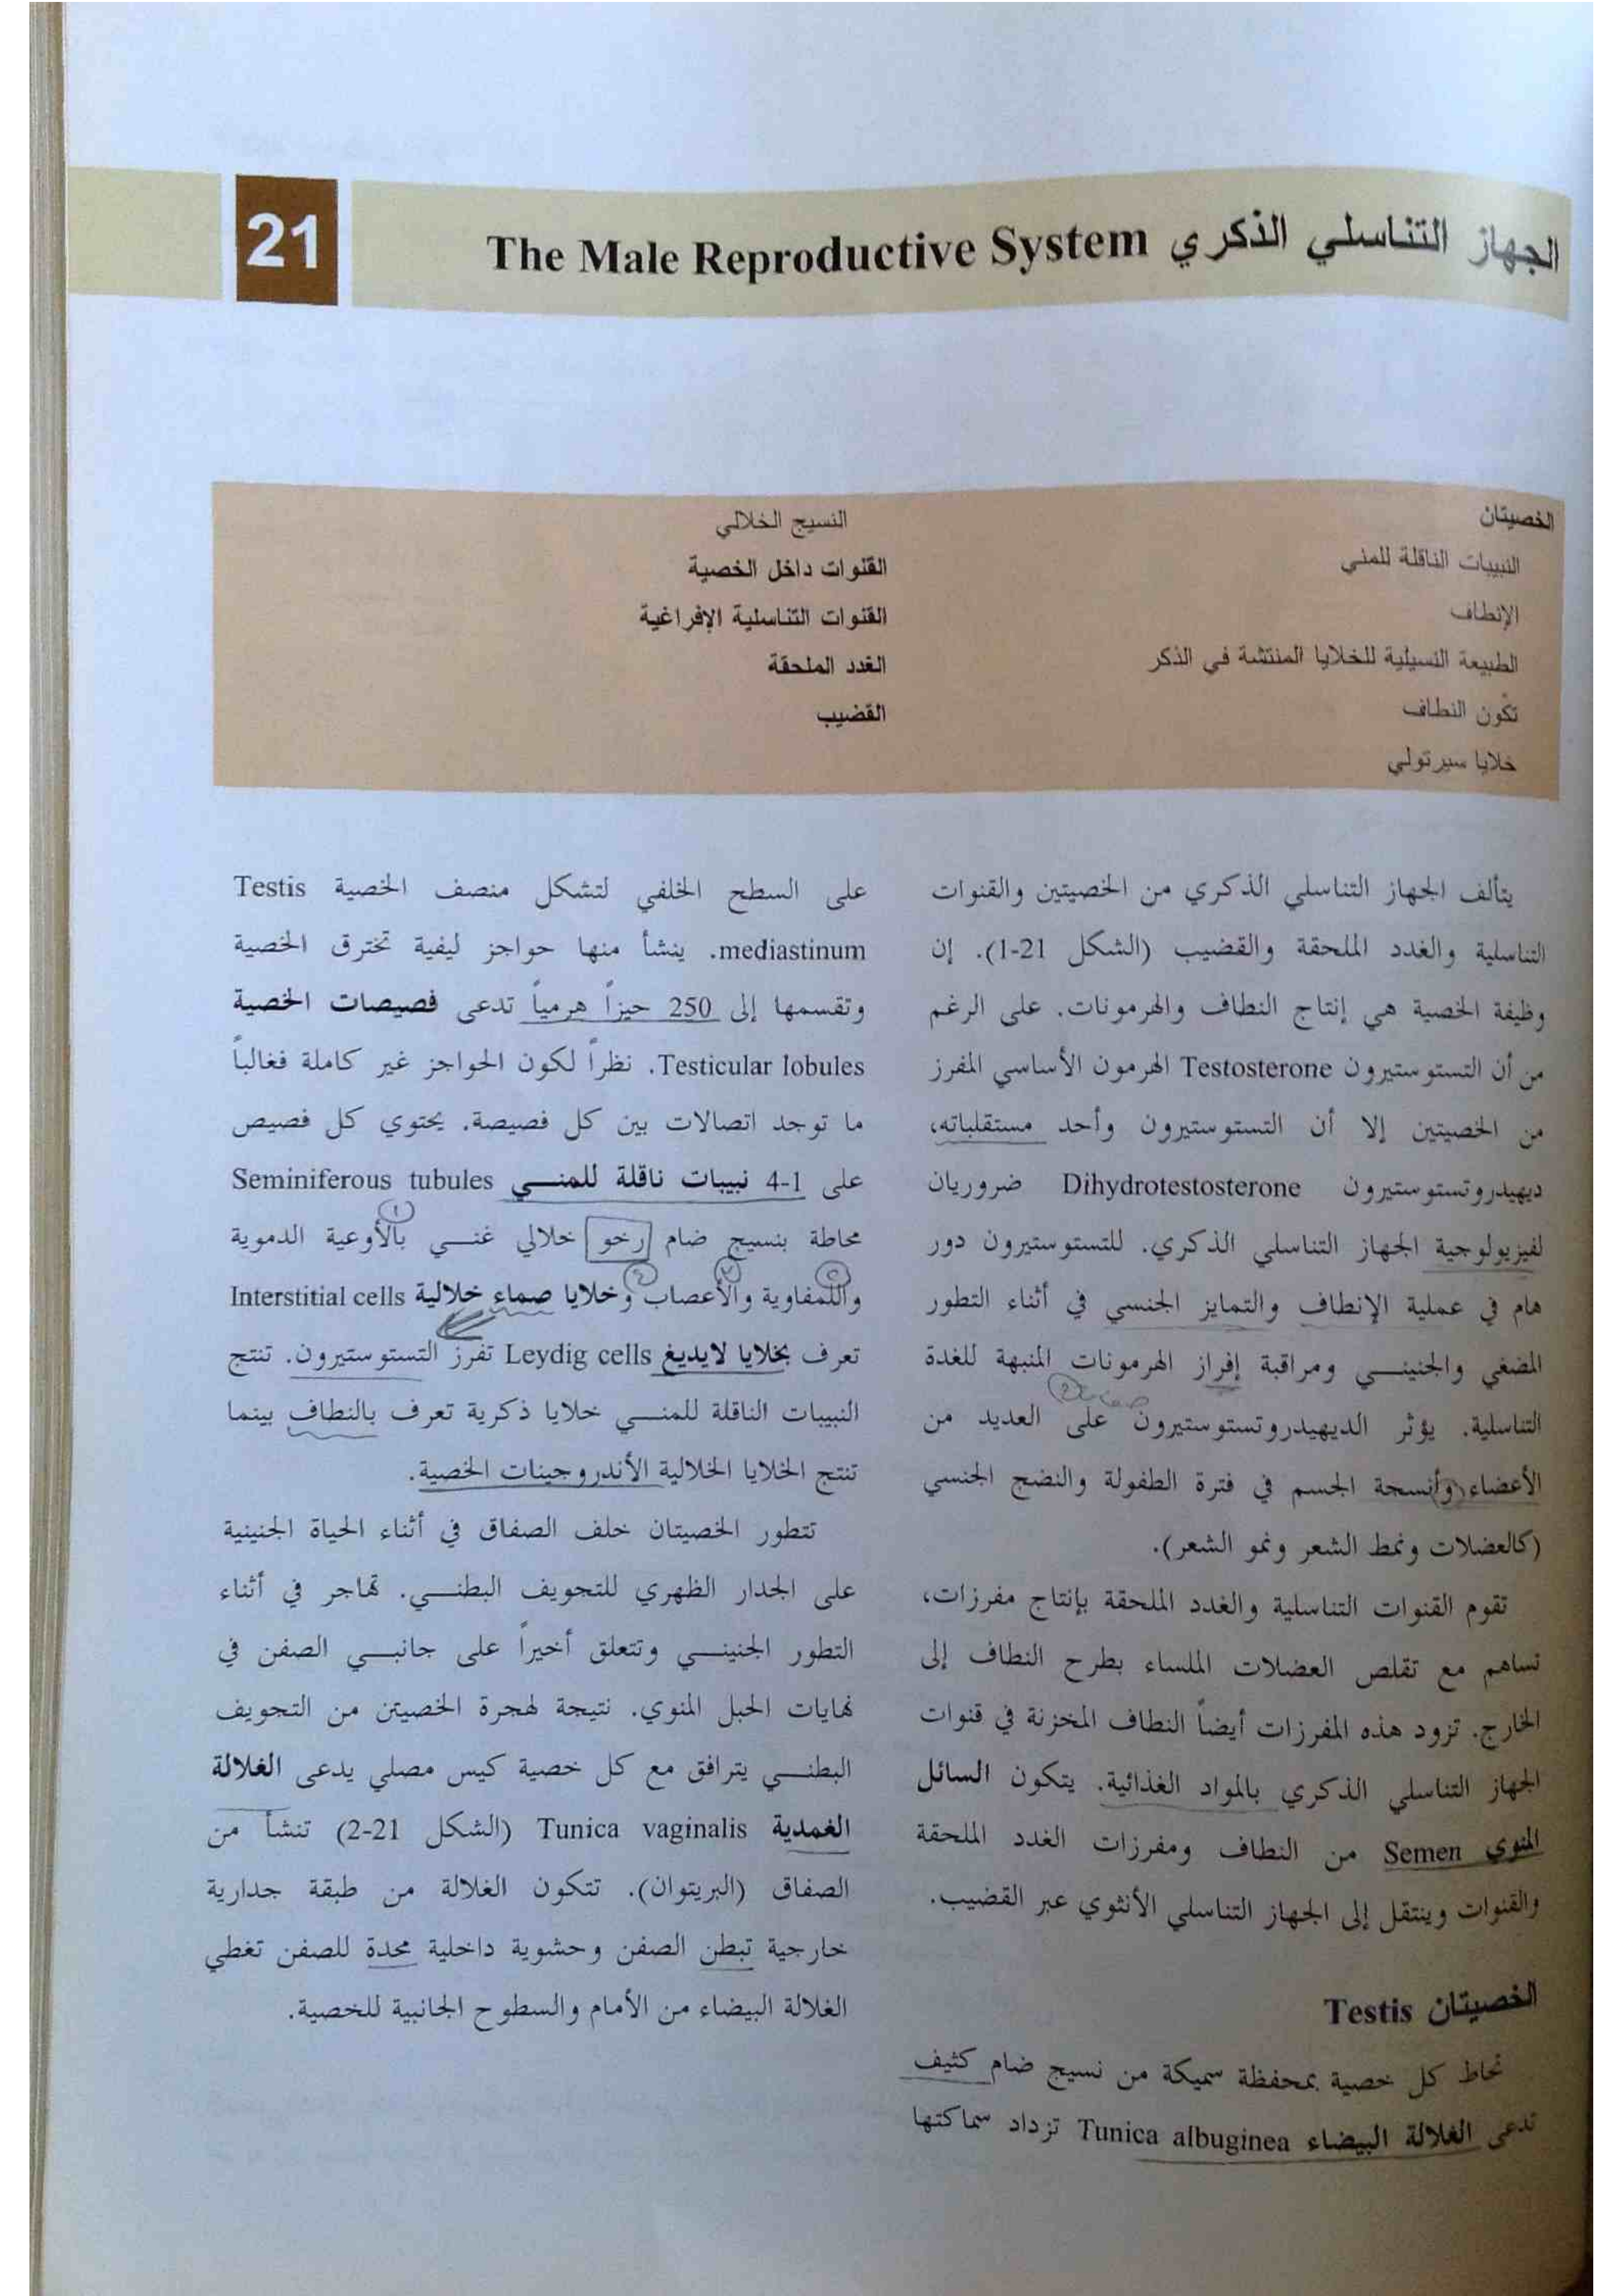 21
الجهاز التناسلي الذكري The Male Reproductive System
الخصيتان
النبيبات الناقلة للمني
الإنطاف
الطبيعة النسيلية للخلايا المنتشة في الذكر
تكّون النطاف
خلايا سيرتولي
النسيج الخلالي
القنوات داخل الخصية
القنوات التناسلية الإفراغية
الغدد الملحقة
القضيب
يتألف الجهاز التناسلي الذكري من الخصيتين والقنوات
التناسلية والغدد الملحقة والقضيب (الشكل 21-1). إن
وظيفة الخصية هي إنتاج النطاف والهرمونات. على الرغم
من أن التستوستيرون Testosterone الهرمون الأساسي المفرز
من الخصيتين إلا أن التستوستيرون وأحد مستقلباته،
ديهيدروتستوستيرون Dihydrotestosterone ضروريان
لفيزيولوجية الجهاز التناسلي الذكري. للتستوستيرون دور
هام في عملية الإنطاف والتمايز الجنسي في أثناء التطور
المضغي والجنيني ومراقبة إفراز الهرمونات المنبهة للغدة
التناسلية. يؤثر الديهيدروتستوستيرون على العديد من
الأعضاء وأنسجة الجسم في فترة الطفولة والنضج الجنسي
(كالعضلات ونمط الشعر ونمو الشعر).
تقوم القنوات التناسلية والغدد الملحقة بإنتاج مفرزات،
تساهم مع تقلص العضلات الملساء بطرح النطاف إلى
الخارج. تزود هذه المفرزات أيضاً النطاف المخزنة في قنوات
الجهاز التناسلي الذكري بالمواد الغذائية. يتكون السائل
المنوي Semen من النطاف ومفرزات الغدد الملحقة
والقنوات وينتقل إلى الجهاز التناسلي الأنثوي عبر القضيب.
الخصيتان Testis
تحاط كل خصية بمحفظة سميكة من نسيج ضام كثيف
تدعى الغلالة البيضاء Tunica albuginea تزداد سماكتها
على السطح الخلفي لتشكل منصف الخصية Testis
mediastinum. ينشأ منها حواجز ليفية تخترق الخصية
وتقسمها إلى 250 حيزاً هرمياً تدعى فصيصات الخصية
Testicular lobules. نظراً لكون الحواجز غير كاملة فغالباً
ما توجد اتصالات بين كل فصيصة. يحتوي كل فصيص
على 1-4 نبيبات ناقلة للمني Seminiferous tubules
محاطة بنسيج ضام رخو خلالي غني بالأوعية الدموية
واللمفاوية والأعصاب وخلايا صماء خلالية Interstitial cells
تعرف بخلايا لايديغ Leydig cells تفرز التستوستيرون. تنتج
النبيبات الناقلة للمني خلايا ذكرية تعرف بالنطاف بينما
تنتج الخلايا الخلالية الأندروجينات الخصية.
تتطور الخصيتان خلف الصفاق في أثناء الحياة الجنينية
على الجدار الظهري للتجويف البطني. تهاجر في أثناء
التطور الجنيني وتتعلق أخيراً على جانبي الصفن في
نهايات الحبل المنوي. نتيجة لهجرة الخصيتن من التجويف
البطني يترافق مع كل خصية كيس مصلي يدعى الغلالة
الغمدية Tunica vaginalis (الشكل 21-2) تنشأ من
الصفاق (البريتوان). تتكون الغلالة من طبقة جدارية
خارجية تبطن الصفن وحشوية داخلية محدة للصفن تغطي
الغلالة البيضاء من الأمام والسطوح الجانبية للخصية.